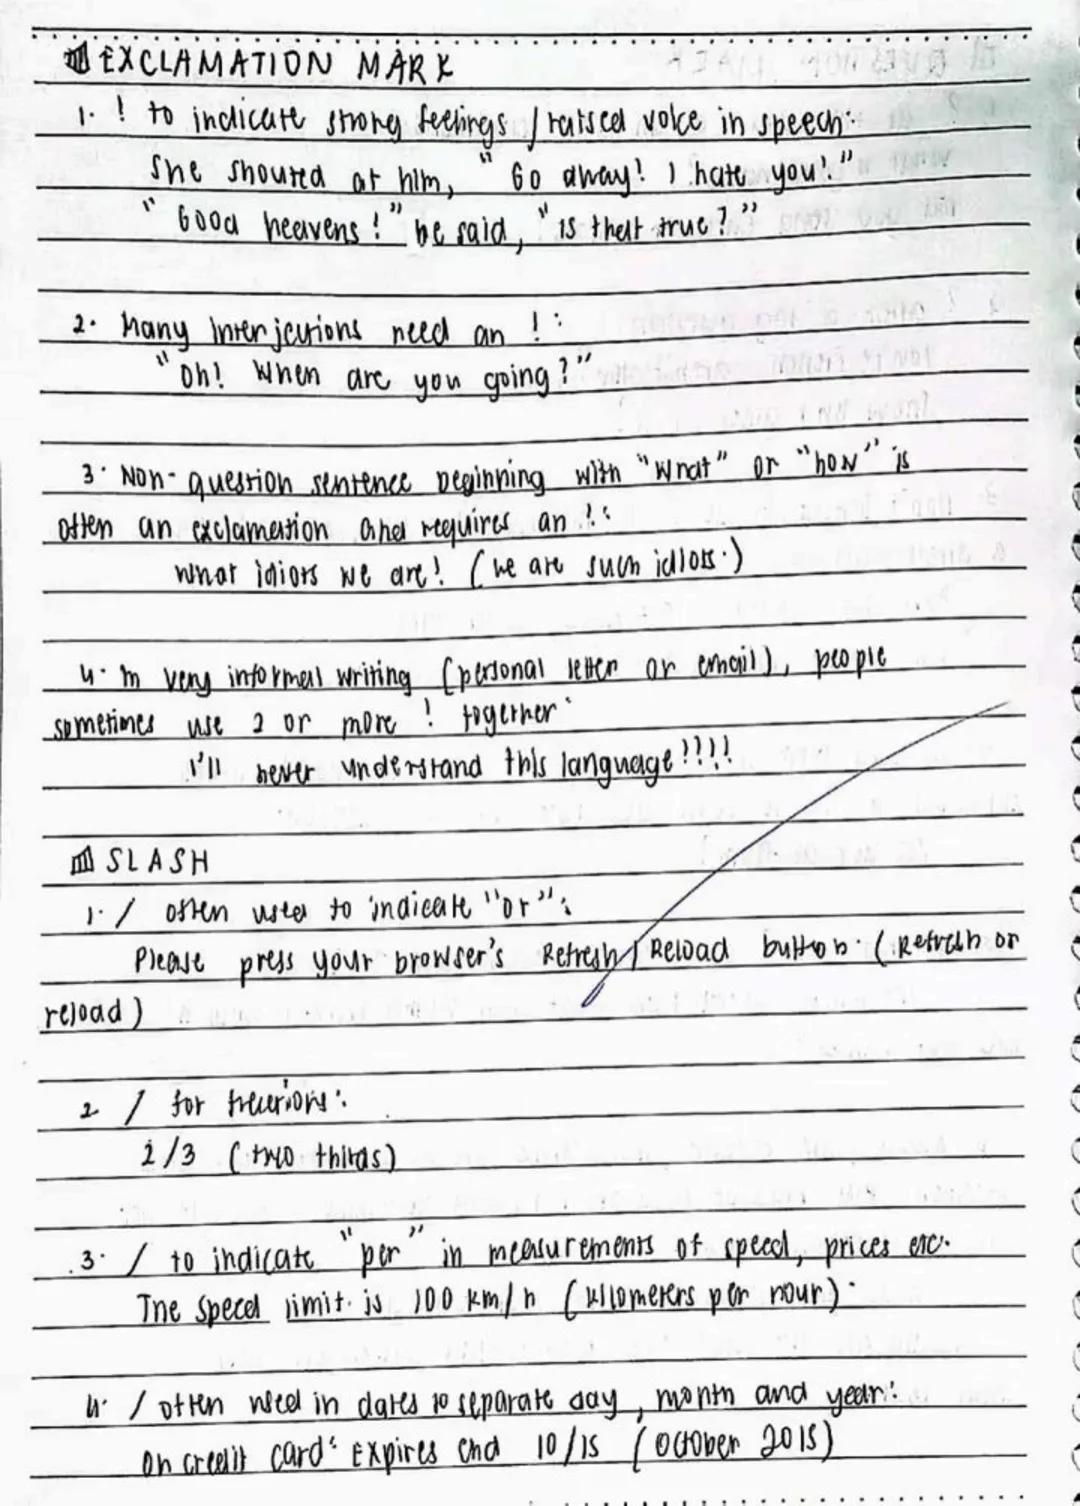 EXCLAMATION MARK
1. ! to indicate strong feelings / raised voice in speech:
She shouted at him, "Go away! I hate you!"
"Good heavens!" he said, "is that true?"
2. Many interjections need an ! :
"Oh! When are you going?"
3. Non-question sentence beginning with "what" or "how" is
often an exclamation and requires an ! :
What idiots we are! (we are such idiots.)
4. In very informal writing (personal letter or email), people
sometimes use 2 or more ! together.
I'll never understand this language!!!!
SLASH
1. / often used to indicate "or":
Please press your browser's Refresh / Reload button. (Refresh or
reload)
2 / for fractions:
2/3 (two thirds)
3. / to indicate "per" in measurements of speed, prices etc.
The speed limit is 100 km/h (kilometers per hour).
4. / often used in dates to separate day, month and year:
On credit card: Expires end 10/15 (October 2015)